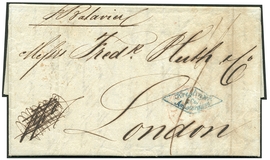 Batavier
Messrs Fredk. Huth & Co
London